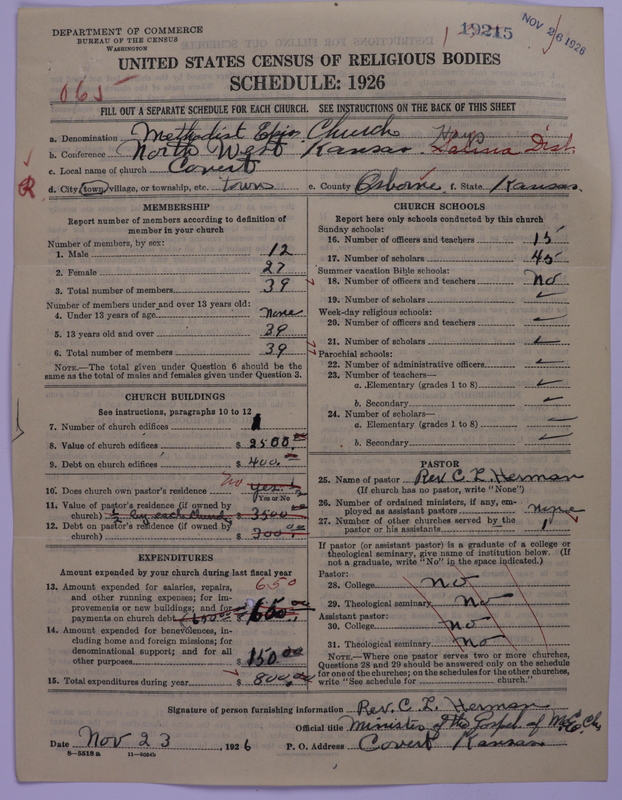 DEPARTMENT OF COMMERCE
BUREAU OF THE CENSUS
WASHINGTON
19215
NOV 26 1926
UNITED STATES CENSUS OF RELIGIOUS BODIES
SCHEDULE: 1926
065
FILL OUT A SEPARATE SCHEDULE FOR EACH CHURCH. SEE INSTRUCTIONS ON THE BACK OF THIS SHEET
a. Denomination Methodist Epis Church
b. Conference North West Kansas Hays Salina Dist.
c. Local name of church Covert
d. City, town, village, or township, etc. town e. County Osborne f. State Kansas
R
MEMBERSHIP
Report number of members according to definition of
member in your church
Number of members, by sex:
1. Male 12
2. Female 27
3. Total number of members 39
Number of members under and over 13 years old:
4. Under 13 years of age None
5. 13 years old and over 39
6. Total number of members 39
NOTE.—The total given under Question 6 should be
same as the total of males and females given under Question 3.
CHURCH BUILDINGS
See instructions, paragraphs 10 to 12
7. Number of church edifices 1
8. Value of church edifices $ 2500.00
9. Debt on church edifices $ 400.00
10. Does church own pastor's residence no yes 1/2
(Yes or No)
11. Value of pastor's residence (if owned by
church) 1/2 by each church $ 3500.00
12. Debt on pastor's residence (if owned by
church) $ 700.00
EXPENDITURES
Amount expended by your church during last fiscal year
13. Amount expended for salaries, repairs, 650
and other running expenses; for im-
provements or new buildings; and for
payments on church debt $ 650.00
14. Amount expended for benevolences, in-
cluding home and foreign missions; for
denominational support; and for all
other purposes $ 150.00
15. Total expenditures during year $ 800.00
CHURCH SCHOOLS
Report here only schools conducted by this church
Sunday schools:
16. Number of officers and teachers 15
17. Number of scholars 45
Summer vacation Bible schools:
18. Number of officers and teachers No
19. Number of scholars
Week-day religious schools:
20. Number of officers and teachers
21. Number of scholars
Parochial schools:
22. Number of administrative officers
23. Number of teachers—
a. Elementary (grades 1 to 8)
b. Secondary
24. Number of scholars—
a. Elementary (grades 1 to 8)
b. Secondary
PASTOR
25. Name of pastor Rev C. L. Herman
(If church has no pastor, write "None")
26. Number of ordained ministers, if any, em-
ployed as assistant pastors none
27. Number of other churches served by the
pastor or his assistants 1
If pastor (or assistant pastor) is a graduate of a college or
theological seminary, give name of institution below. (If
not a graduate, write "No" in the space indicated.)
Pastor:
28. College No
29. Theological seminary No
Assistant pastor:
30. College No
31. Theological seminary No
NOTE.—Where one pastor serves two or more churches,
Questions 28 and 29 should be answered only on the schedule
for one of the churches; on the schedules for the other churches,
write "See schedule for church."
Signature of person furnishing information Rev. C. L. Herman
Official title Minister of the Gospel of M.E. Ch.
Date Nov 23, 1926 P. O. Address Covert Kansas
8—5518a